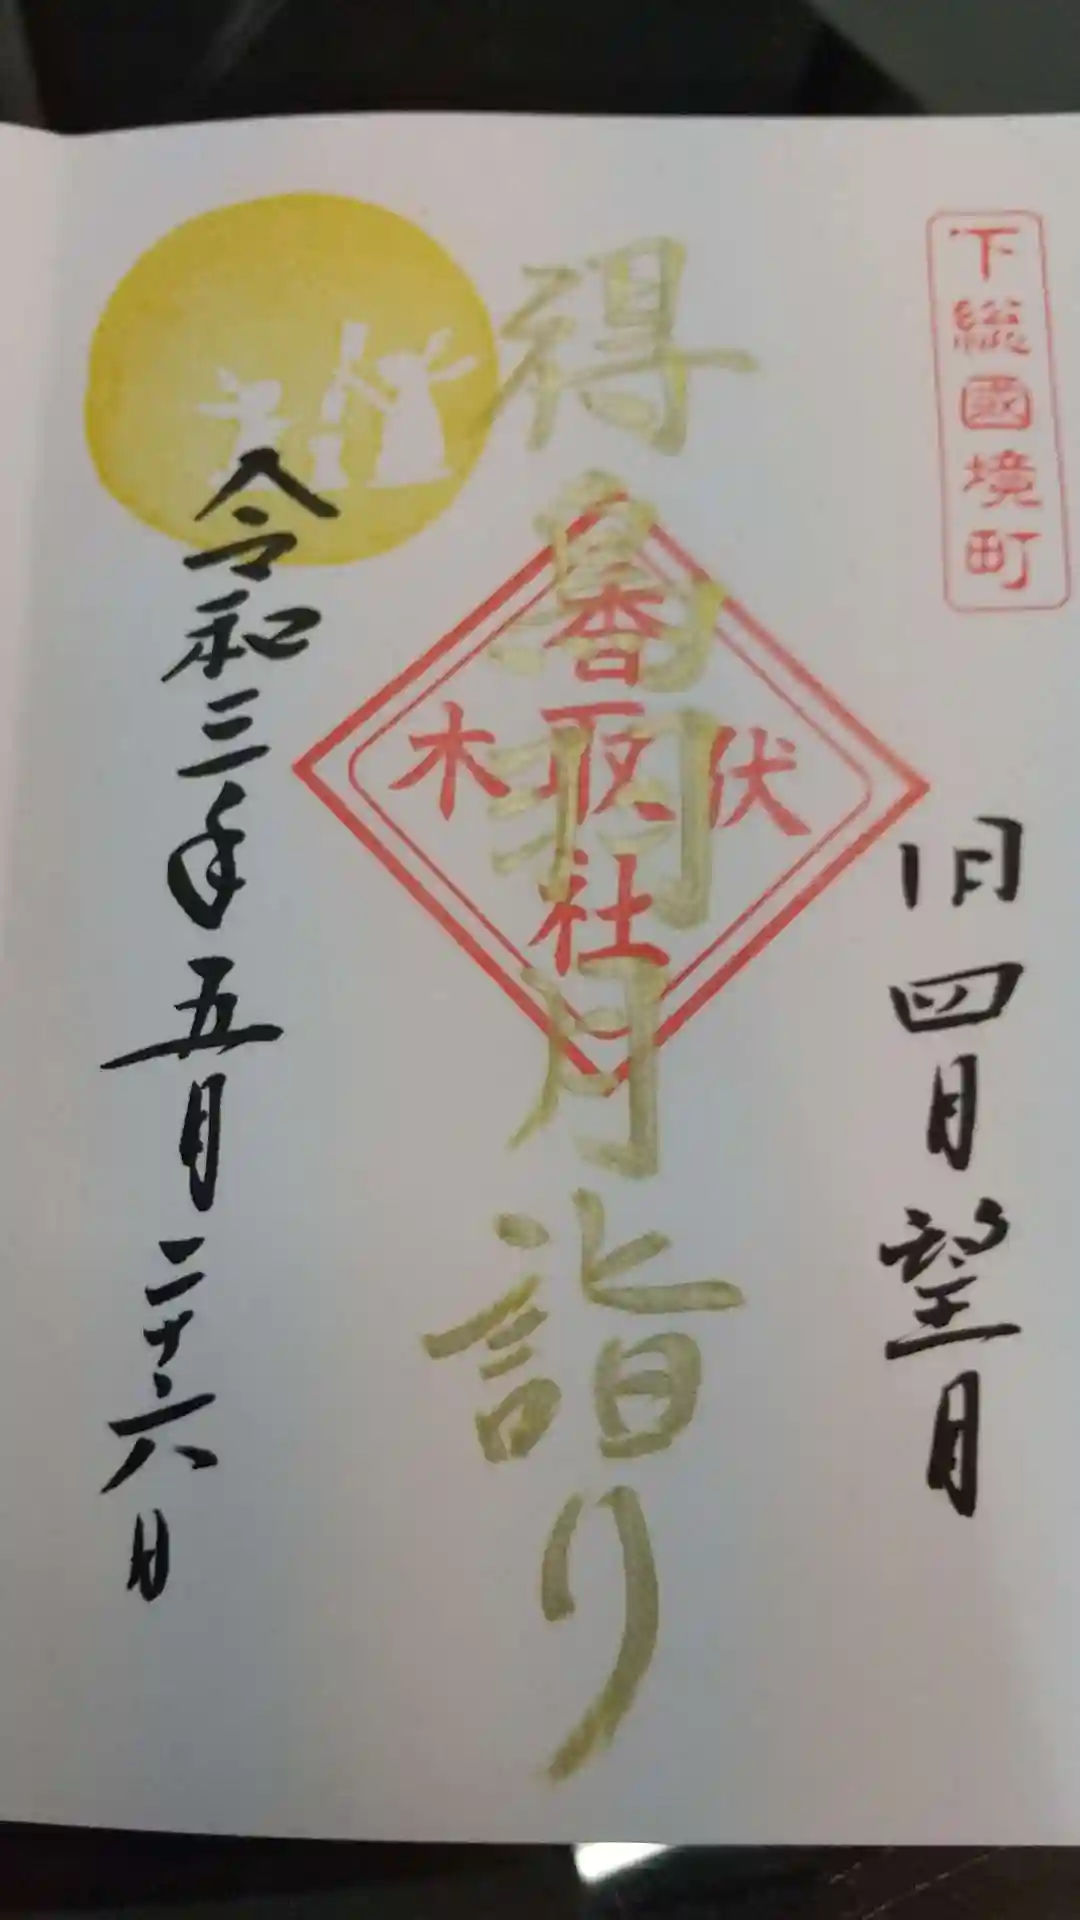 下総國境町
旧四月望月
得鳥羽月詣り
伏木
香取社
令和三年五月二十六日